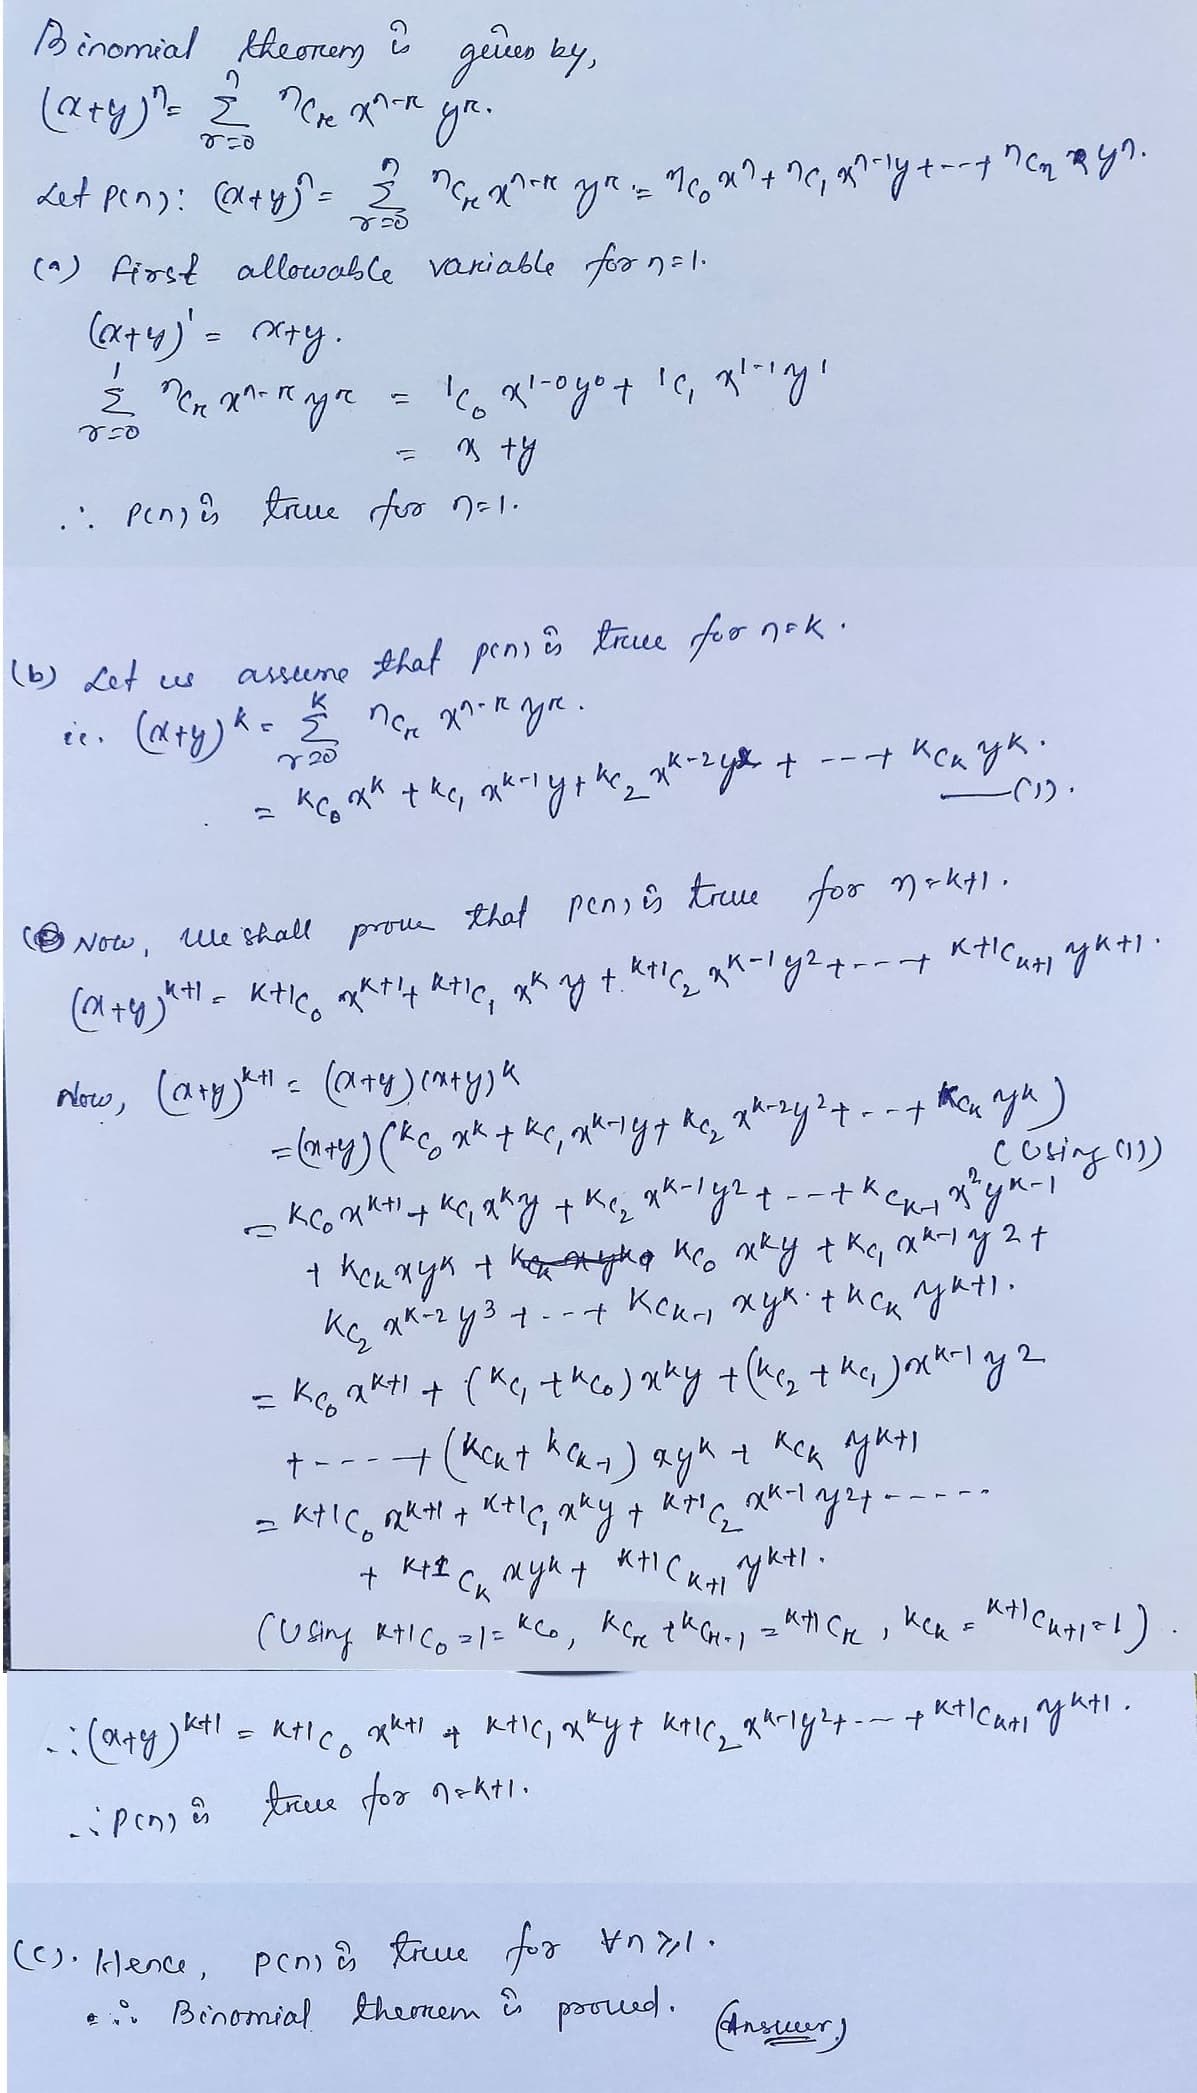 Binomial theorem is given by,
(x+y)ⁿ = Σ_{r=0}^{n} ⁿC_r xⁿ⁻ʳ yʳ.
Let P(n): (x+y)ⁿ = Σ_{r=0}^{n} ⁿC_r xⁿ⁻ʳ yʳ = ⁿC₀ xⁿ + ⁿC₁ xⁿ⁻¹y + --- + ⁿC_n yⁿ.
(a) first allowable variable for n=1.
(x+y)¹ = x+y.
Σ_{r=0}^{1} ⁿC_r xⁿ⁻ʳ yʳ = ¹C₀ x¹⁻⁰y⁰ + ¹C₁ x¹⁻¹y¹
= x + y
∴ P(n) is true for n=1.
(b) Let us assume that P(n) is true for n=k.
ie. (x+y)ᵏ = Σ_{r=0}^{k} ⁿC_r xⁿ⁻ʳ yʳ.
= ᵏC₀ xᵏ + ᵏC₁ xᵏ⁻¹y + ᵏC₂ xᵏ⁻²y² + --- + ᵏC_k yᵏ.
—(1).
Now, we shall prove that P(n) is true for n=k+1.
(x+y)ᵏ⁺¹ = ᵏ⁺¹C₀ xᵏ⁺¹ + ᵏ⁺¹C₁ xᵏy + ᵏ⁺¹C₂ xᵏ⁻¹y² + --- + ᵏ⁺¹C_{k+1} yᵏ⁺¹.
Now, (x+y)ᵏ⁺¹ = (x+y)(x+y)ᵏ
= (x+y)(ᵏC₀ xᵏ + ᵏC₁ xᵏ⁻¹y + ᵏC₂ xᵏ⁻²y² + --- + ᵏC_k yᵏ)
(Using (1))
= ᵏC₀ xᵏ⁺¹ + ᵏC₁ xᵏy + ᵏC₂ xᵏ⁻¹y² + --- + ᵏC_{k-1} x²yᵏ⁻¹
+ ᵏC_k xyᵏ + ᵏC₀ xᵏy + ᵏC₁ xᵏ⁻¹y² +
ᵏC₂ xᵏ⁻²y³ + --- + ᵏC_{k-1} xyᵏ + ᵏC_k yᵏ⁺¹.
= ᵏC₀ xᵏ⁺¹ + (ᵏC₁ + ᵏC₀) xᵏy + (ᵏC₂ + ᵏC₁) xᵏ⁻¹y²
+ ---- + (ᵏC_k + ᵏC_{k-1}) xyᵏ + ᵏC_k yᵏ⁺¹
= ᵏ⁺¹C₀ xᵏ⁺¹ + ᵏ⁺¹C₁ xᵏy + ᵏ⁺¹C₂ xᵏ⁻¹y² + -----
+ ᵏ⁺¹C_k xyᵏ + ᵏ⁺¹C_{k+1} yᵏ⁺¹.
(Using ᵏ⁺¹C₀ = 1 = ᵏC₀, ᵏC_r + ᵏC_{r-1} = ᵏ⁺¹C_r, ᵏC_k = ᵏ⁺¹C_{k+1} = 1).
∴ (x+y)ᵏ⁺¹ = ᵏ⁺¹C₀ xᵏ⁺¹ + ᵏ⁺¹C₁ xᵏy + ᵏ⁺¹C₂ xᵏ⁻¹y² + --- + ᵏ⁺¹C_{k+1} yᵏ⁺¹.
∴ P(n) is true for n=k+1.
(c). Hence, P(n) is true for ∀n⩾1.
∴ Binomial theorem is proved. (Answer)